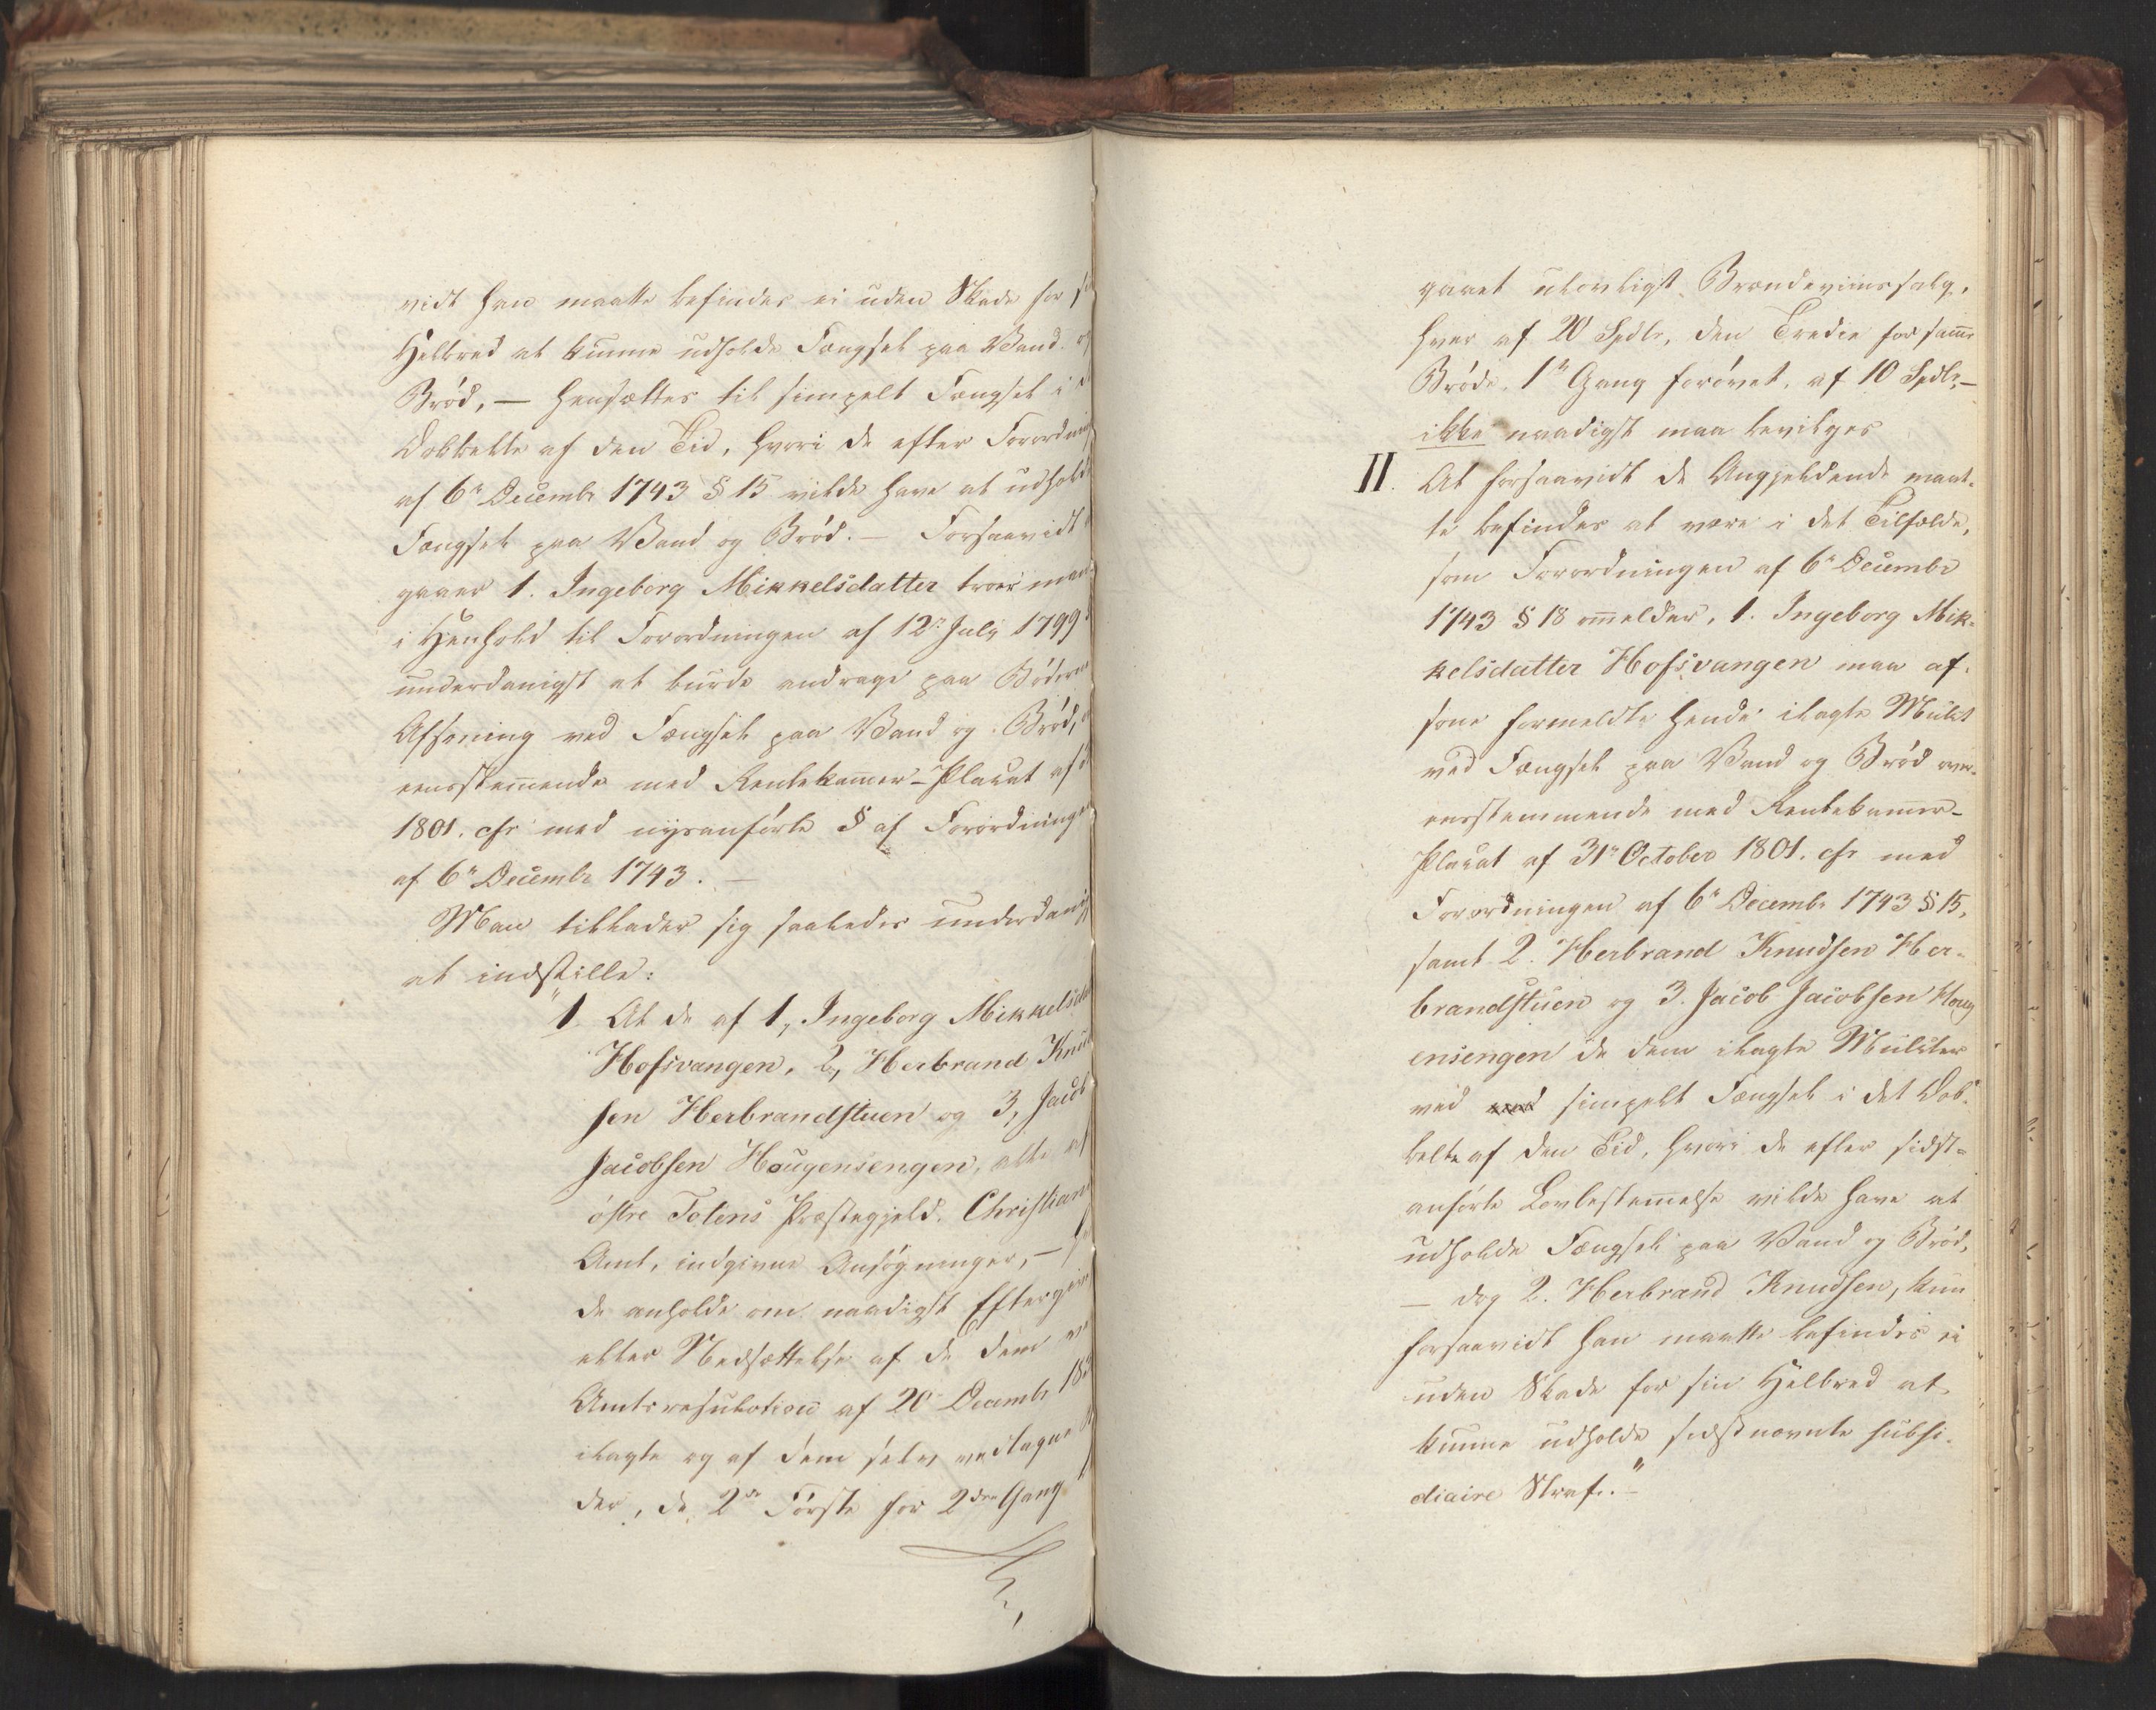 vidt han maatte befindes ei uden Skade for
Helbred at kunne udholde Fængsel paa Vand
Brød, — hensættes til simpelt Fængsel i
Dobbelte af den Tid, hvori de efter Forordning
af 6te Decembr 1743 § 15 vilde have at udholde
Fængsel paa Vand og Brød. — Forsaavidt
gaaer 1. Ingeborg Mikkelsdatter troer man
i Henhold til Forordningen af 12te July 1799
underdanigst at burde andrage paa Bødernes
Afsoning ved Fængsel paa Vand og Brød,
eensstemmende med Rentekammer-Placat af
1801. cfr med nysanførte § af Forordningen
af 6te Decembr 1743. —
Man tillader sig saaledes underdanigst
at indstille:
"1. At de af 1, Ingeborg Mikkelsda
Hofsvangen, 2, Herbrand Knud
sen Herbrandstuen og 3, Jacob
Jacobsen Hougensengen, alle af
østre Totens Præstegjeld, Christians
Amt, indgivne Ansøgninger, —
de anholde om naadigst Eftergive
eller Nedsættelse af de dem
Amtsresolution af 20 Decembr 183
ilagte og af dem selv vedtagne
der, de 2de Første for 2den Gang
gaaet ulovligt Brændeviinssalg,
hver af 20 Spdlr, den Tredie for samme
Brøde, 1te Gang forøvet, af 10 Spdlr, —
ikke naadigst maa bevilges
II. At forsaavidt de Angjeldende maat-
te befindes at være i det Tilfælde,
som Forordningen af 6te Decembr
1743 § 18 ommelder, 1. Ingeborg Mik-
kelsdatter Hofsvangen maa af-
sone formeldte hende ilagte Mulct
ved Fængsel paa Vand og Brød over-
eensstemmende med Rentekammer-
Placat af 31te October 1801. cfr med
Forordningen af 6te Decembr 1743 § 15,
samt 2. Herbrand Knudsen Her-
brandstuen og 3. Jacob Jacobsen Houg
ensengen de dem ilagte Mulcter
ved simpelt Fængsel i det Dob-
belte af den Tid, hvori de efter sidst-
anførte Lovbestemmelse vilde have at
udholde Fængsel paa Vand og Brød,
— dog 2. Herbrand Knudsen, kun
forsaavidt han maatte befindes ei
uden Skade for sin Helbred at
kunne udholde sidstnævnte subsi-
diaire Straf." —